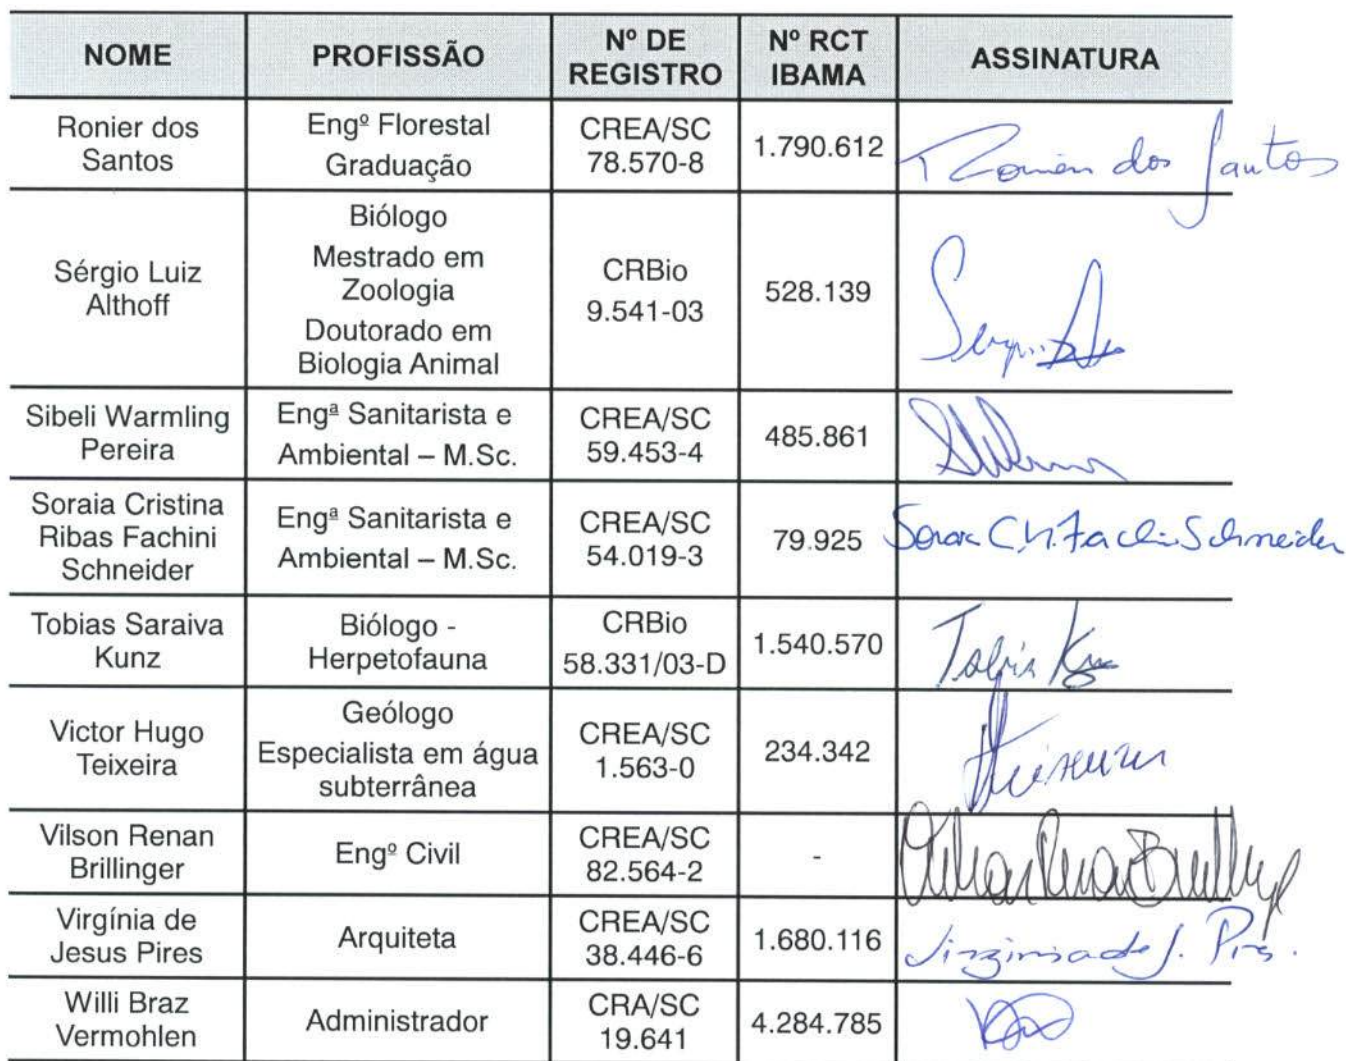 NOME PROFISSÃO Nº DE REGISTRO Nº RCT IBAMA ASSINATURA
Ronier dos Santos
Engº Florestal
Graduação
CREA/SC
78.570-8
1.790.612
Ronier dos Santos
Sérgio Luiz
Althoff
Biólogo
Mestrado em
Zoologia
Doutorado em
Biologia Animal
CRBio
9.541-03
528.139
Sibeli Warmling
Pereira
Engª Sanitarista e
Ambiental – M.Sc.
CREA/SC
59.453-4
485.861
Soraia Cristina
Ribas Fachini
Schneider
Engª Sanitarista e
Ambiental – M.Sc.
CREA/SC
54.019-3
79.925
Schneider
Tobias Saraiva
Kunz
Biólogo -
Herpetofauna
CRBio
58.331/03-D
1.540.570
Victor Hugo
Teixeira
Geólogo
Especialista em água
subterrânea
CREA/SC
1.563-0
234.342
Vilson Renan
Brillinger
Engº Civil
CREA/SC
82.564-2
-
Virgínia de
Jesus Pires
Arquiteta
CREA/SC
38.446-6
1.680.116
Virginia de J. Pires.
Willi Braz
Vermohlen
Administrador
CRA/SC
19.641
4.284.785